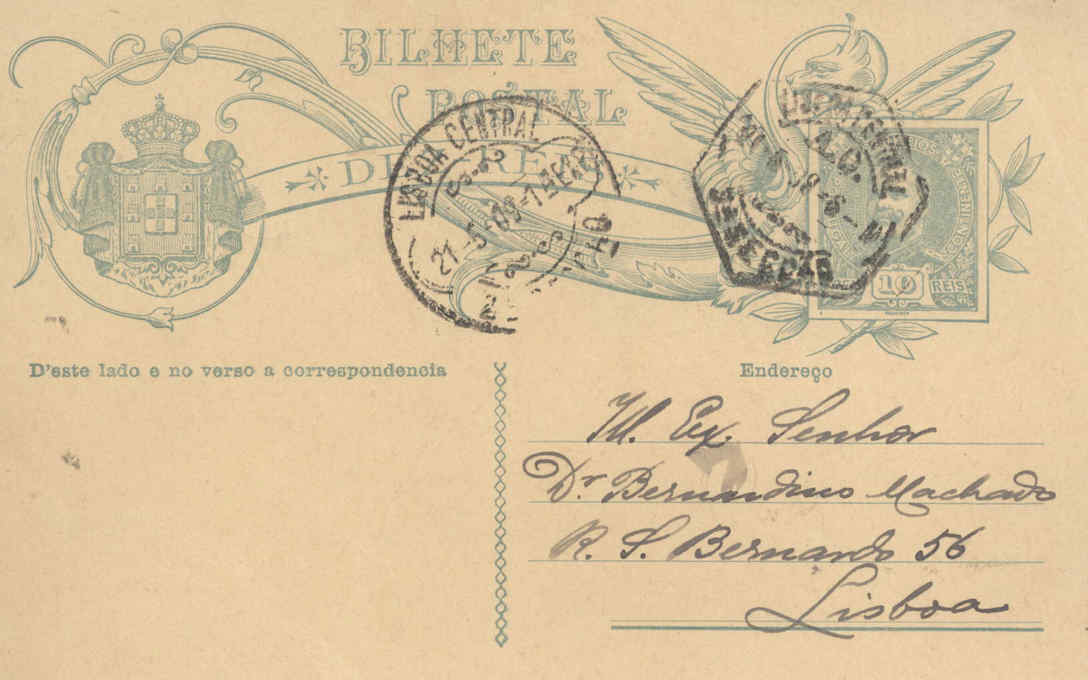 BILHETE
POSTAL
LISBOA CENTRAL
A.C.
3ª SECÇÃO
10 REIS
D'este lado e no verso a correspondencia
Endereço
Ill. Ex. Senhor
Dr. Bernardino Machado
R. S. Bernardo 56
Lisboa